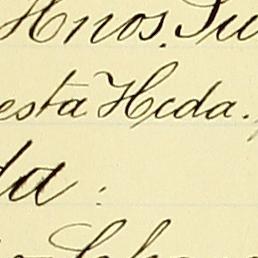 Hnos. Su
esta Hcda.
da: